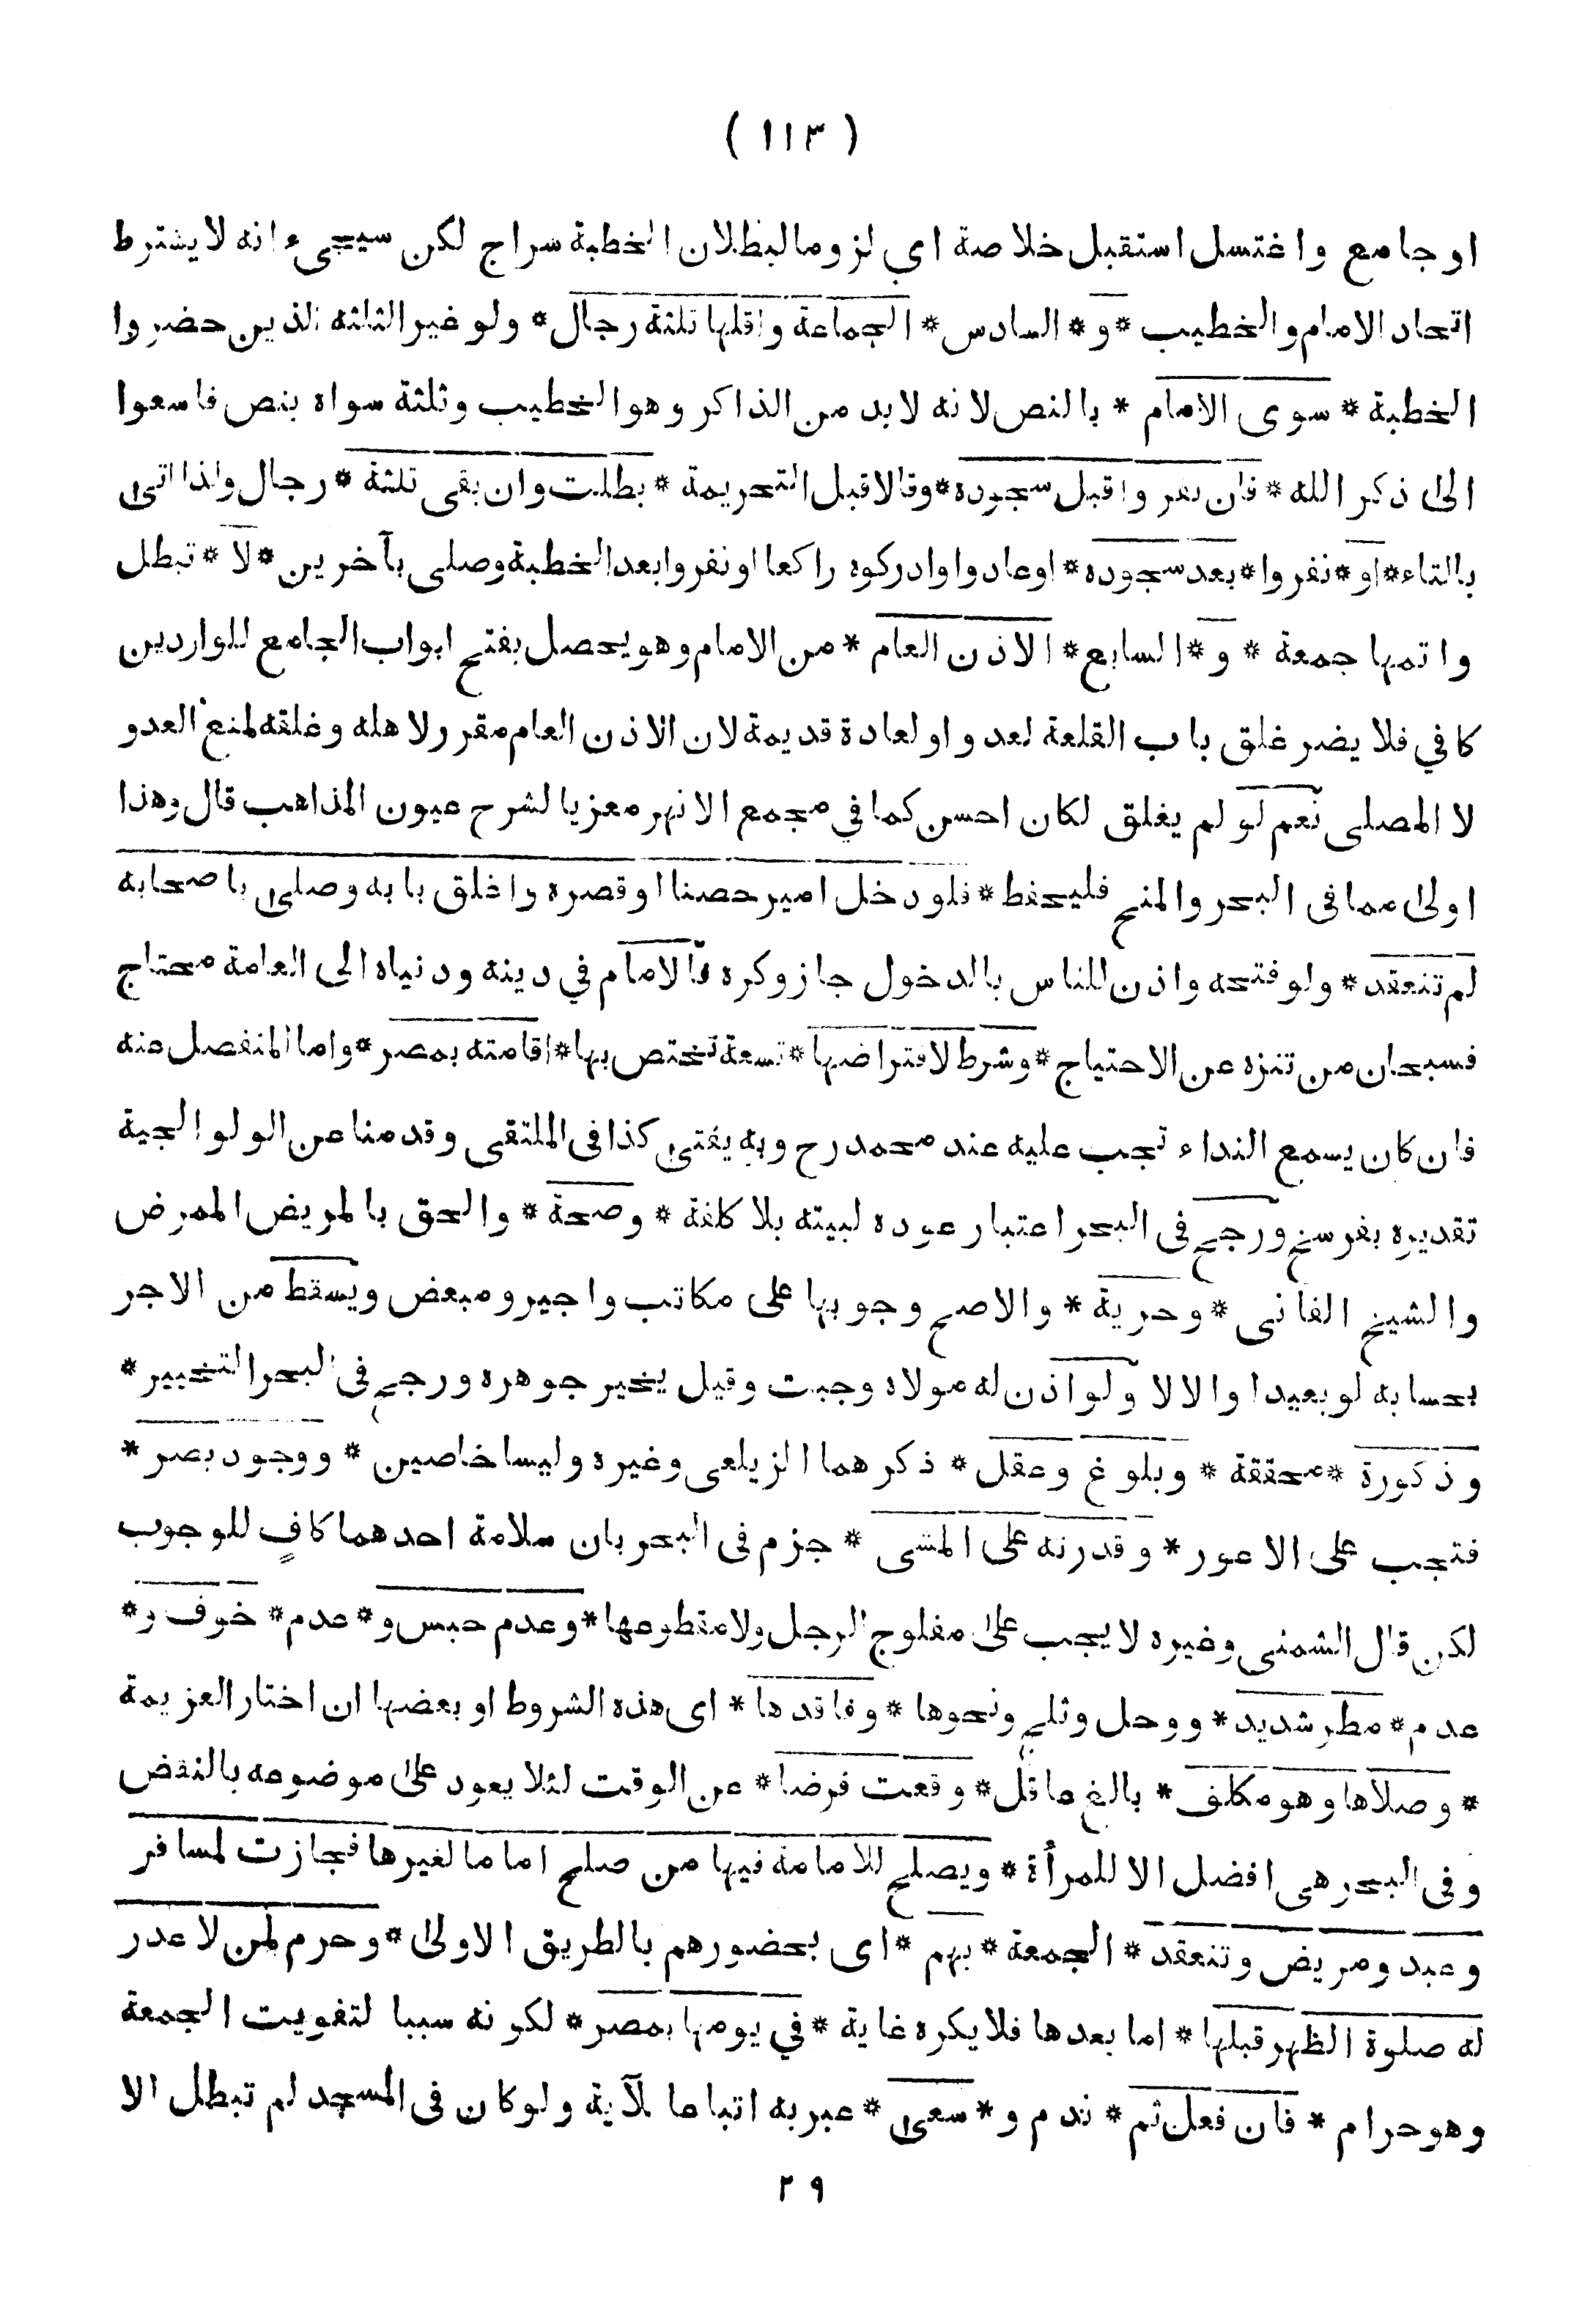 ( ١١٣ )
او جامع واغتسل استقبل خلاصة اي لزوما لبطلان الخطبة سراج لكن سيجىء انه لا يشترط
اتحاد الامام والخطيب * و * السادس * الجماعة واقلها ثلثة رجال * ولو غير الثلثه الذين حضروا
الخطبة * سوى الامام * بالنص لانه لابد من الذاكر وهو الخطيب وثلثة سواه بنص فاسعوا
الى ذكر الله * فان نفروا قبل سجوده * وقالا قبل التحريمة * بطلت وان بقى ثلثة * رجال ولذا اتى
بالتاء * او * نفروا * بعد سجوده * او عادوا وادركوه راكعا او نفروا بعد الخطبة وصلى بآخرين * لا * تبطل
واتمها جمعة * و * السابع * الاذن العام * من الامام وهو يحصل بفتح ابواب الجامع للواردين
كافي فلا يضر غلق باب القلعة لعدو او لعادة قديمة لان الاذن العام مقرر لاهله وغلقه لمنع العدو
لا المصلى نعم لو لم يغلق لكان احسن كما في مجمع الانهر معزيا لشرح عيون المذاهب قال وهذا
اولى مما فى البحر والمنح فليحفظ * فلو دخل امير حصنا او قصره واغلق بابه وصلى باصحابه
لم تنعقد * ولو فتحه واذن للناس بالدخول جاز وكره فالامام في دينه ودنياه الى العامة محتاج
فسبحان من تنزه عن الاحتياج * وشرط لافتراضها * تسعة تختص بها * اقامته بمصر * واما المنفصل عنه
فان كان يسمع النداء تجب عليه عند محمد رح وبه يفتى كذا فى الملتقى وقدمنا عن الولوالجية
تقديره بفرسخ ورجح فى البحر اعتبار عوده لبيته بلا كلفة * وصحة * والحق بالمريض الممرض
والشيخ الفانى * وحرية * والاصح وجوبها على مكاتب واجير ومبعض ويسقط من الاجر
بحسابه لو بعيدا والا لا ولو اذن له مولاه وجبت وقيل يخير جوهره ورجح فى البحر التخيير *
وذكورة * محققة * وبلوغ وعقل * ذكرهما الزيلعى وغيره وليسا خاصين * ووجود بصر *
فتجب على الاعور * وقدرته على المشى * جزم فى البحر بان سلامة احدهما كافٍ للوجوب
لكن قال الشمنى وغيره لا يجب على مفلوج الرجل ولا مقطوعها * وعدم حبس و * عدم * خوف و *
عدم * مطر شديد * ووحل وثلج ونحوها * وفاقدها * اى هذه الشروط او بعضها ان اختار العزيمة
* وصلاها وهو مكلف * بالغ عاقل * وقعت فرضا * عن الوقت لئلا يعود على موضوعه بالنقض
وفى البحر هى افضل الا للمرأة * ويصلح للامامة فيها من صلح اماما لغيرها فجازت لمسافر
وعبد ومريض وتنعقد * الجمعة * بهم * اى بحضورهم بالطريق الاولى * وحرم لمن لا عذر
له صلوة الظهر قبلها * اما بعدها فلا يكره غاية * في يومها بمصر * لكونه سببا لتفويت الجمعة
وهو حرام * فان فعل ثم * ندم و * سعى * عبر به اتباعا لآية ولو كان فى المسجد لم تبطل الا
٢٩